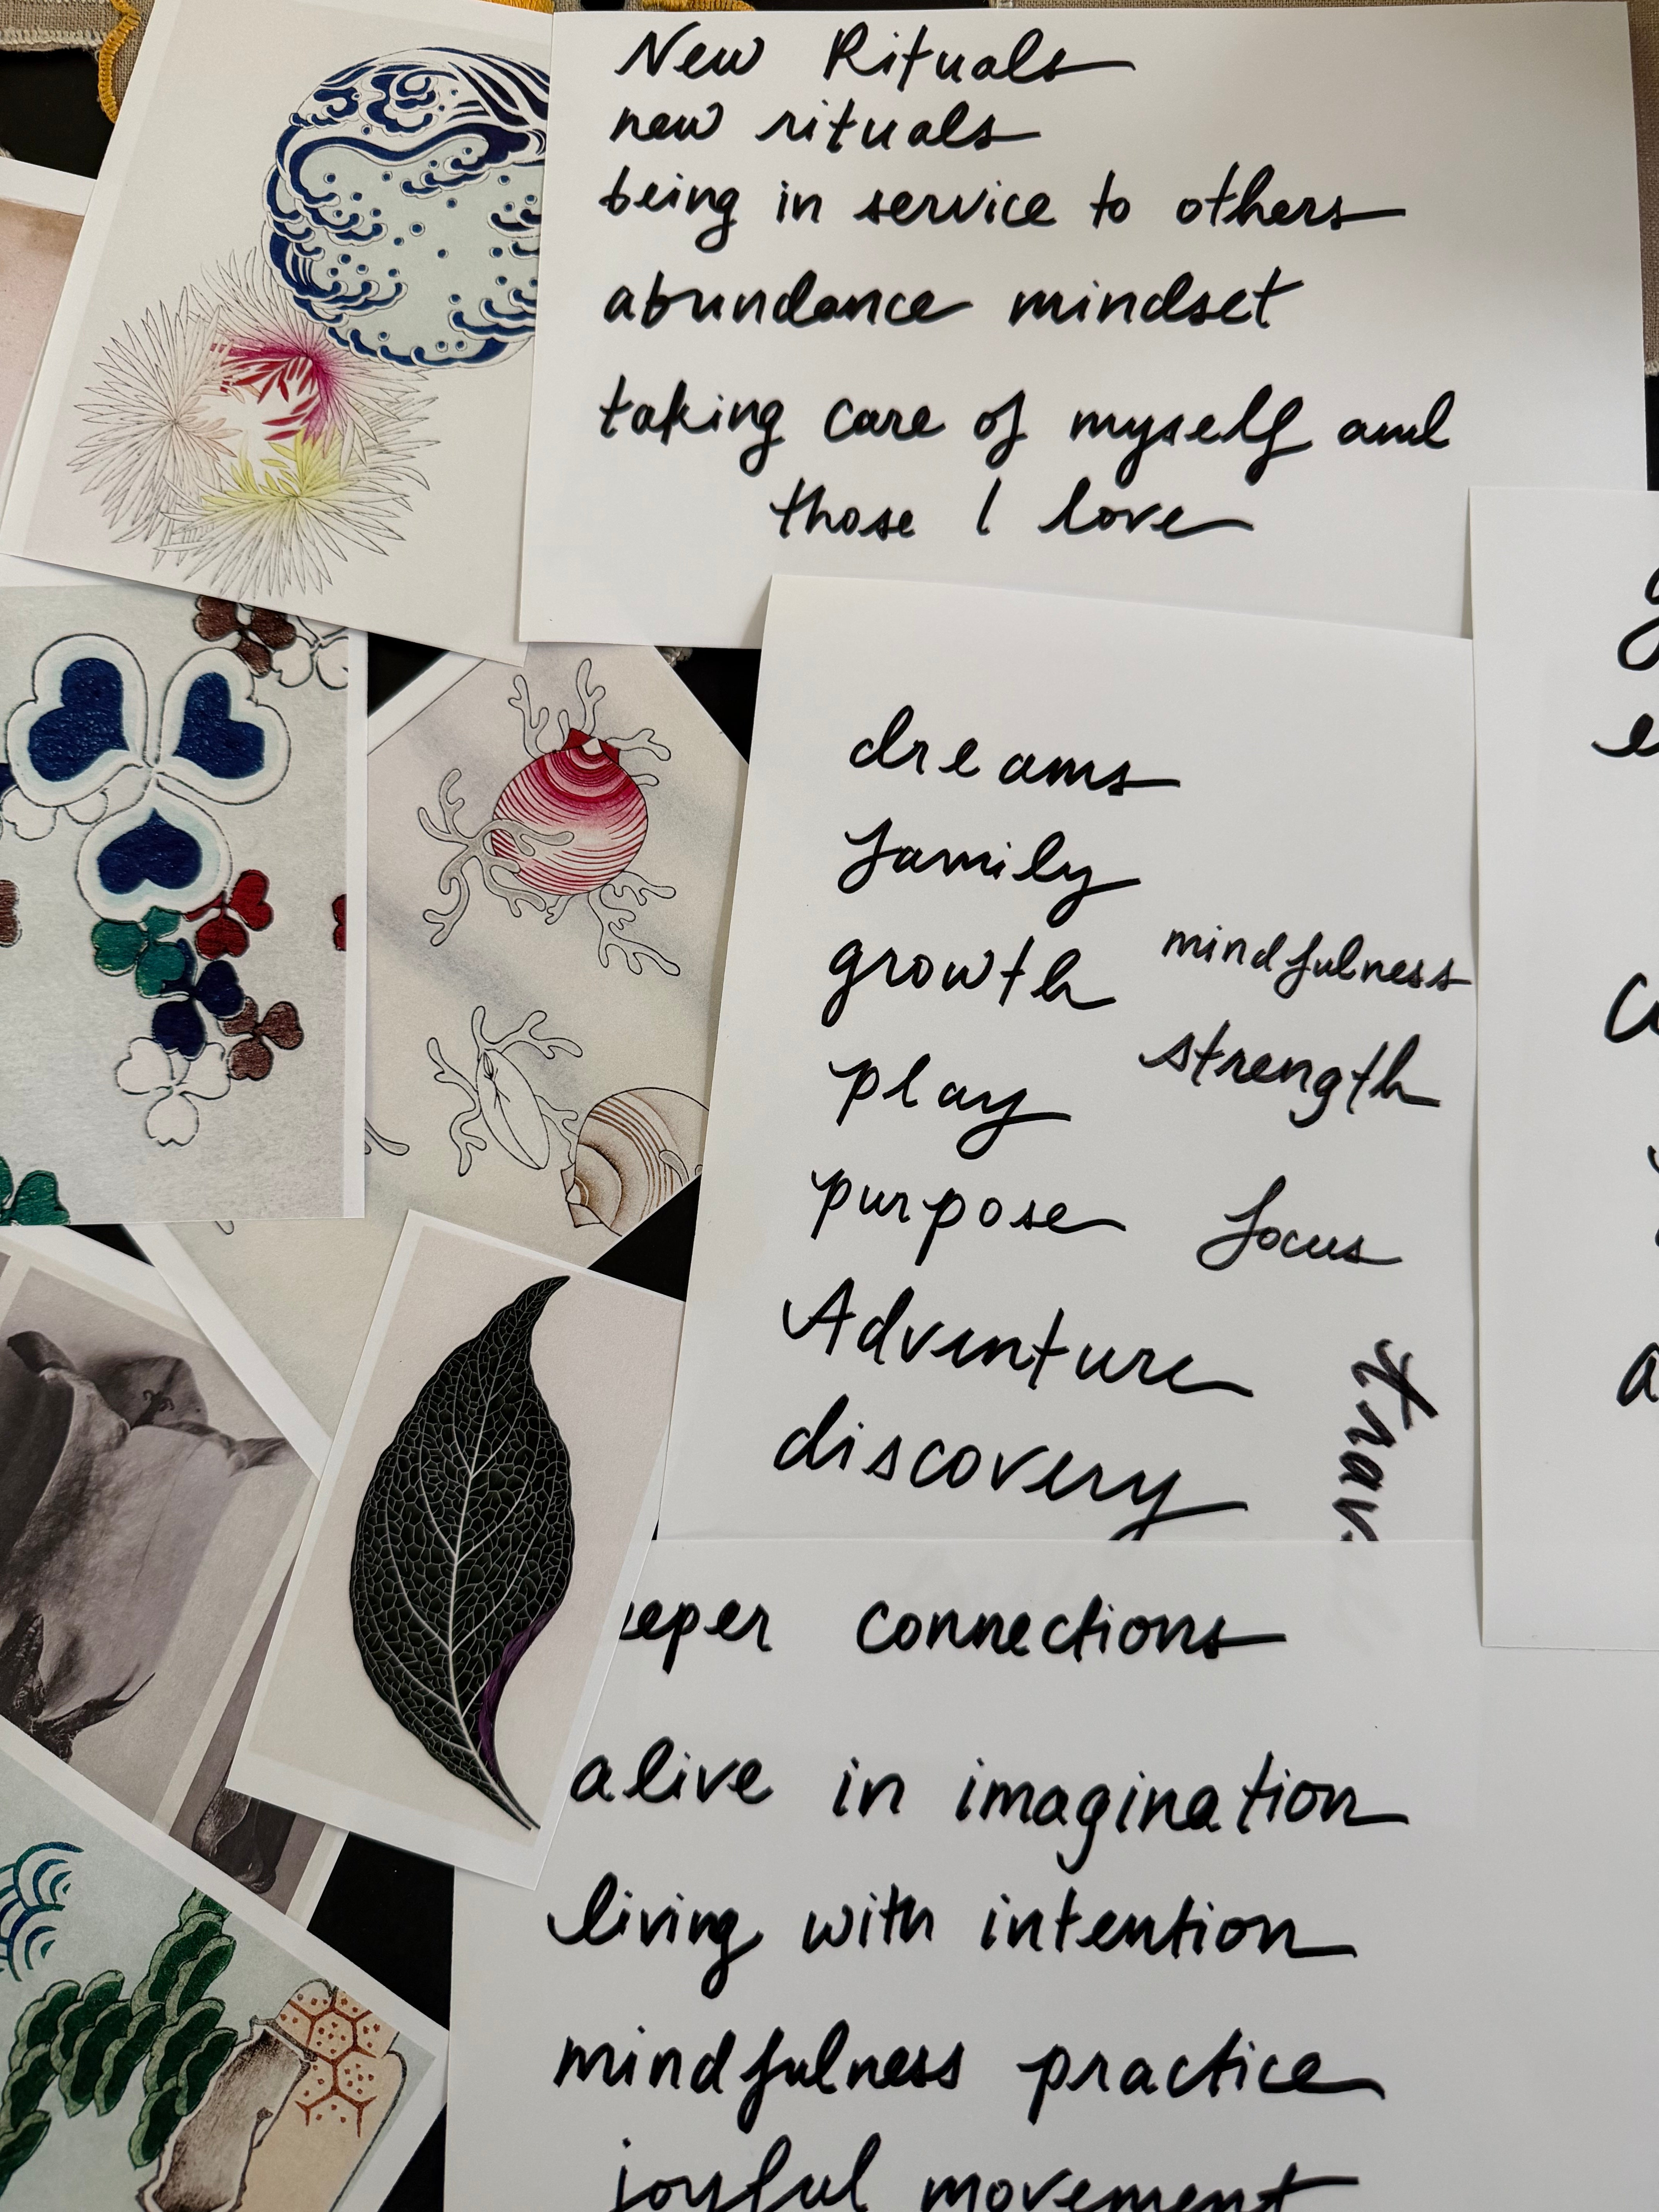 New Rituals
new rituals
being in service to others
abundance mindset
taking care of myself and
those I love
dreams
family
growth
mindfulness
play
strength
purpose
focus
Adventure
discovery
connections
alive in imagination
living with intention
mindfulness practice
joyful movement